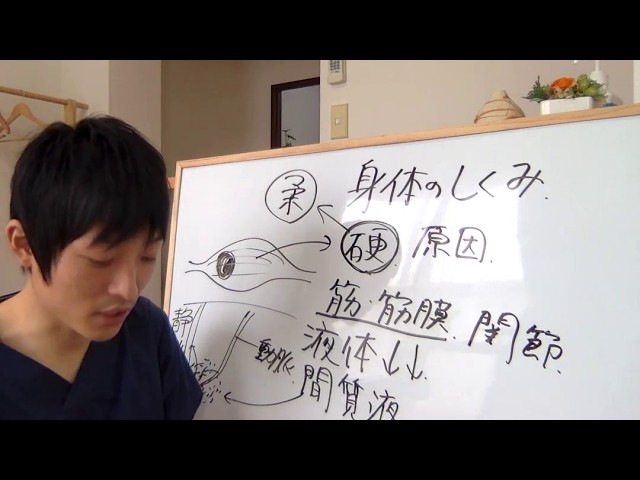 身体のしくみ.
柔
硬 原因.
筋・筋膜.関節.
液体↓↓.
間質液
静
動脈